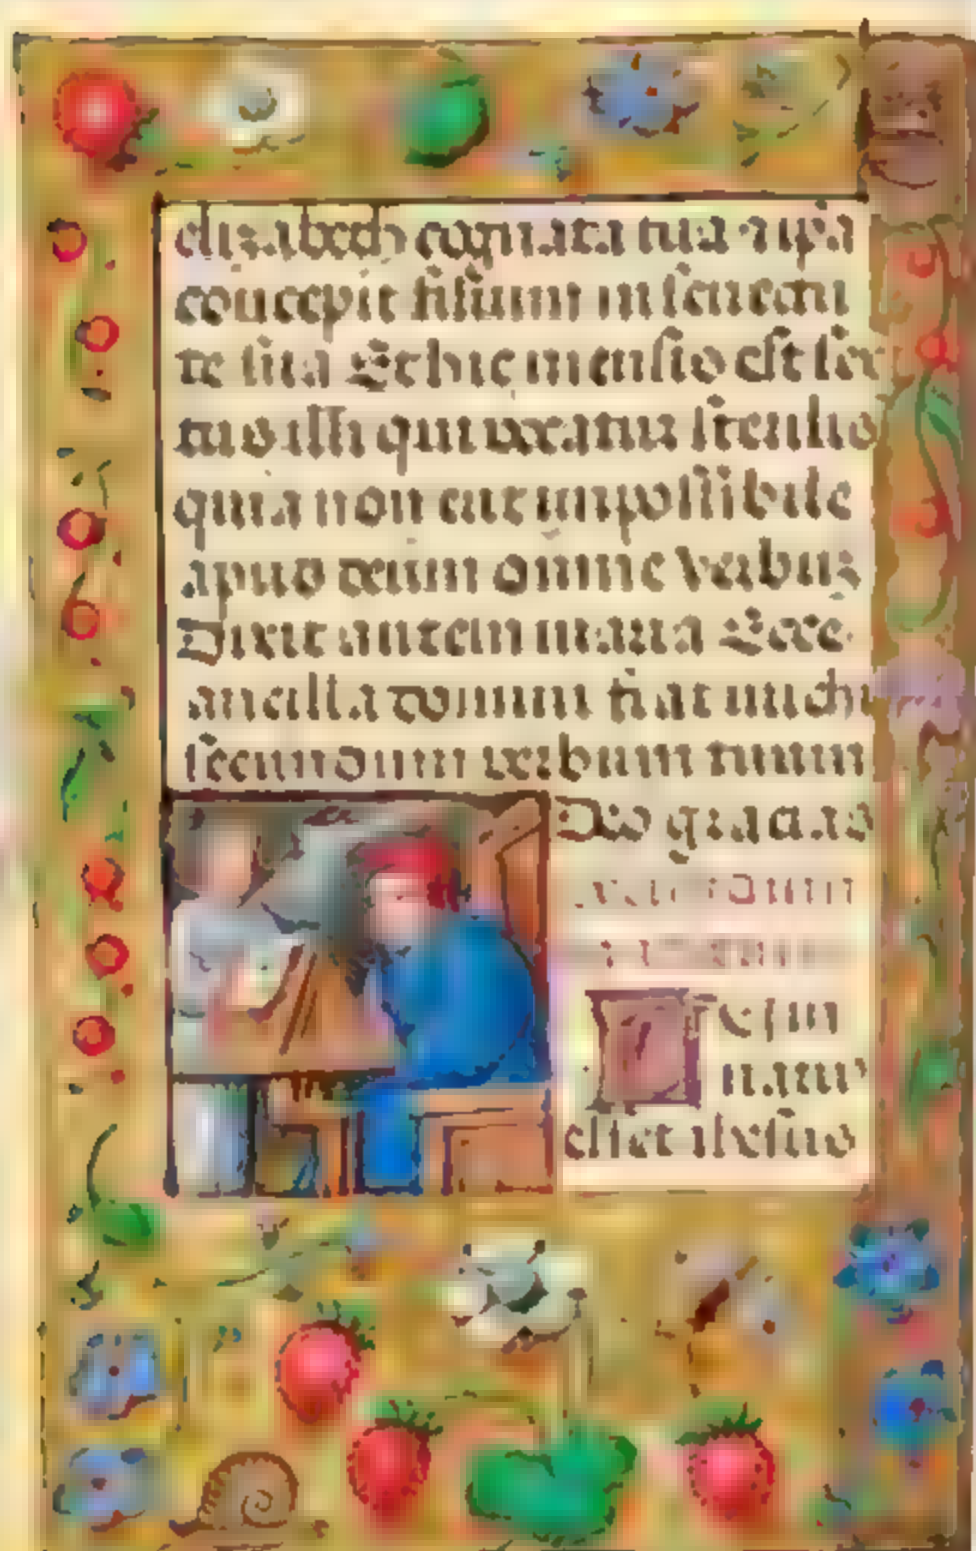 elizabeth cognata tua et ipsa
concepit filium in senectu
te sua Et hic mensis est sex
tus illi qui vocatur sterilis
quia non erit impossibile
apud deum omne verbum
Dixit autem maria Ecce
ancilla domini fiat michi
secundum verbum tuum
Deo gracias
secundum
esset ihesus